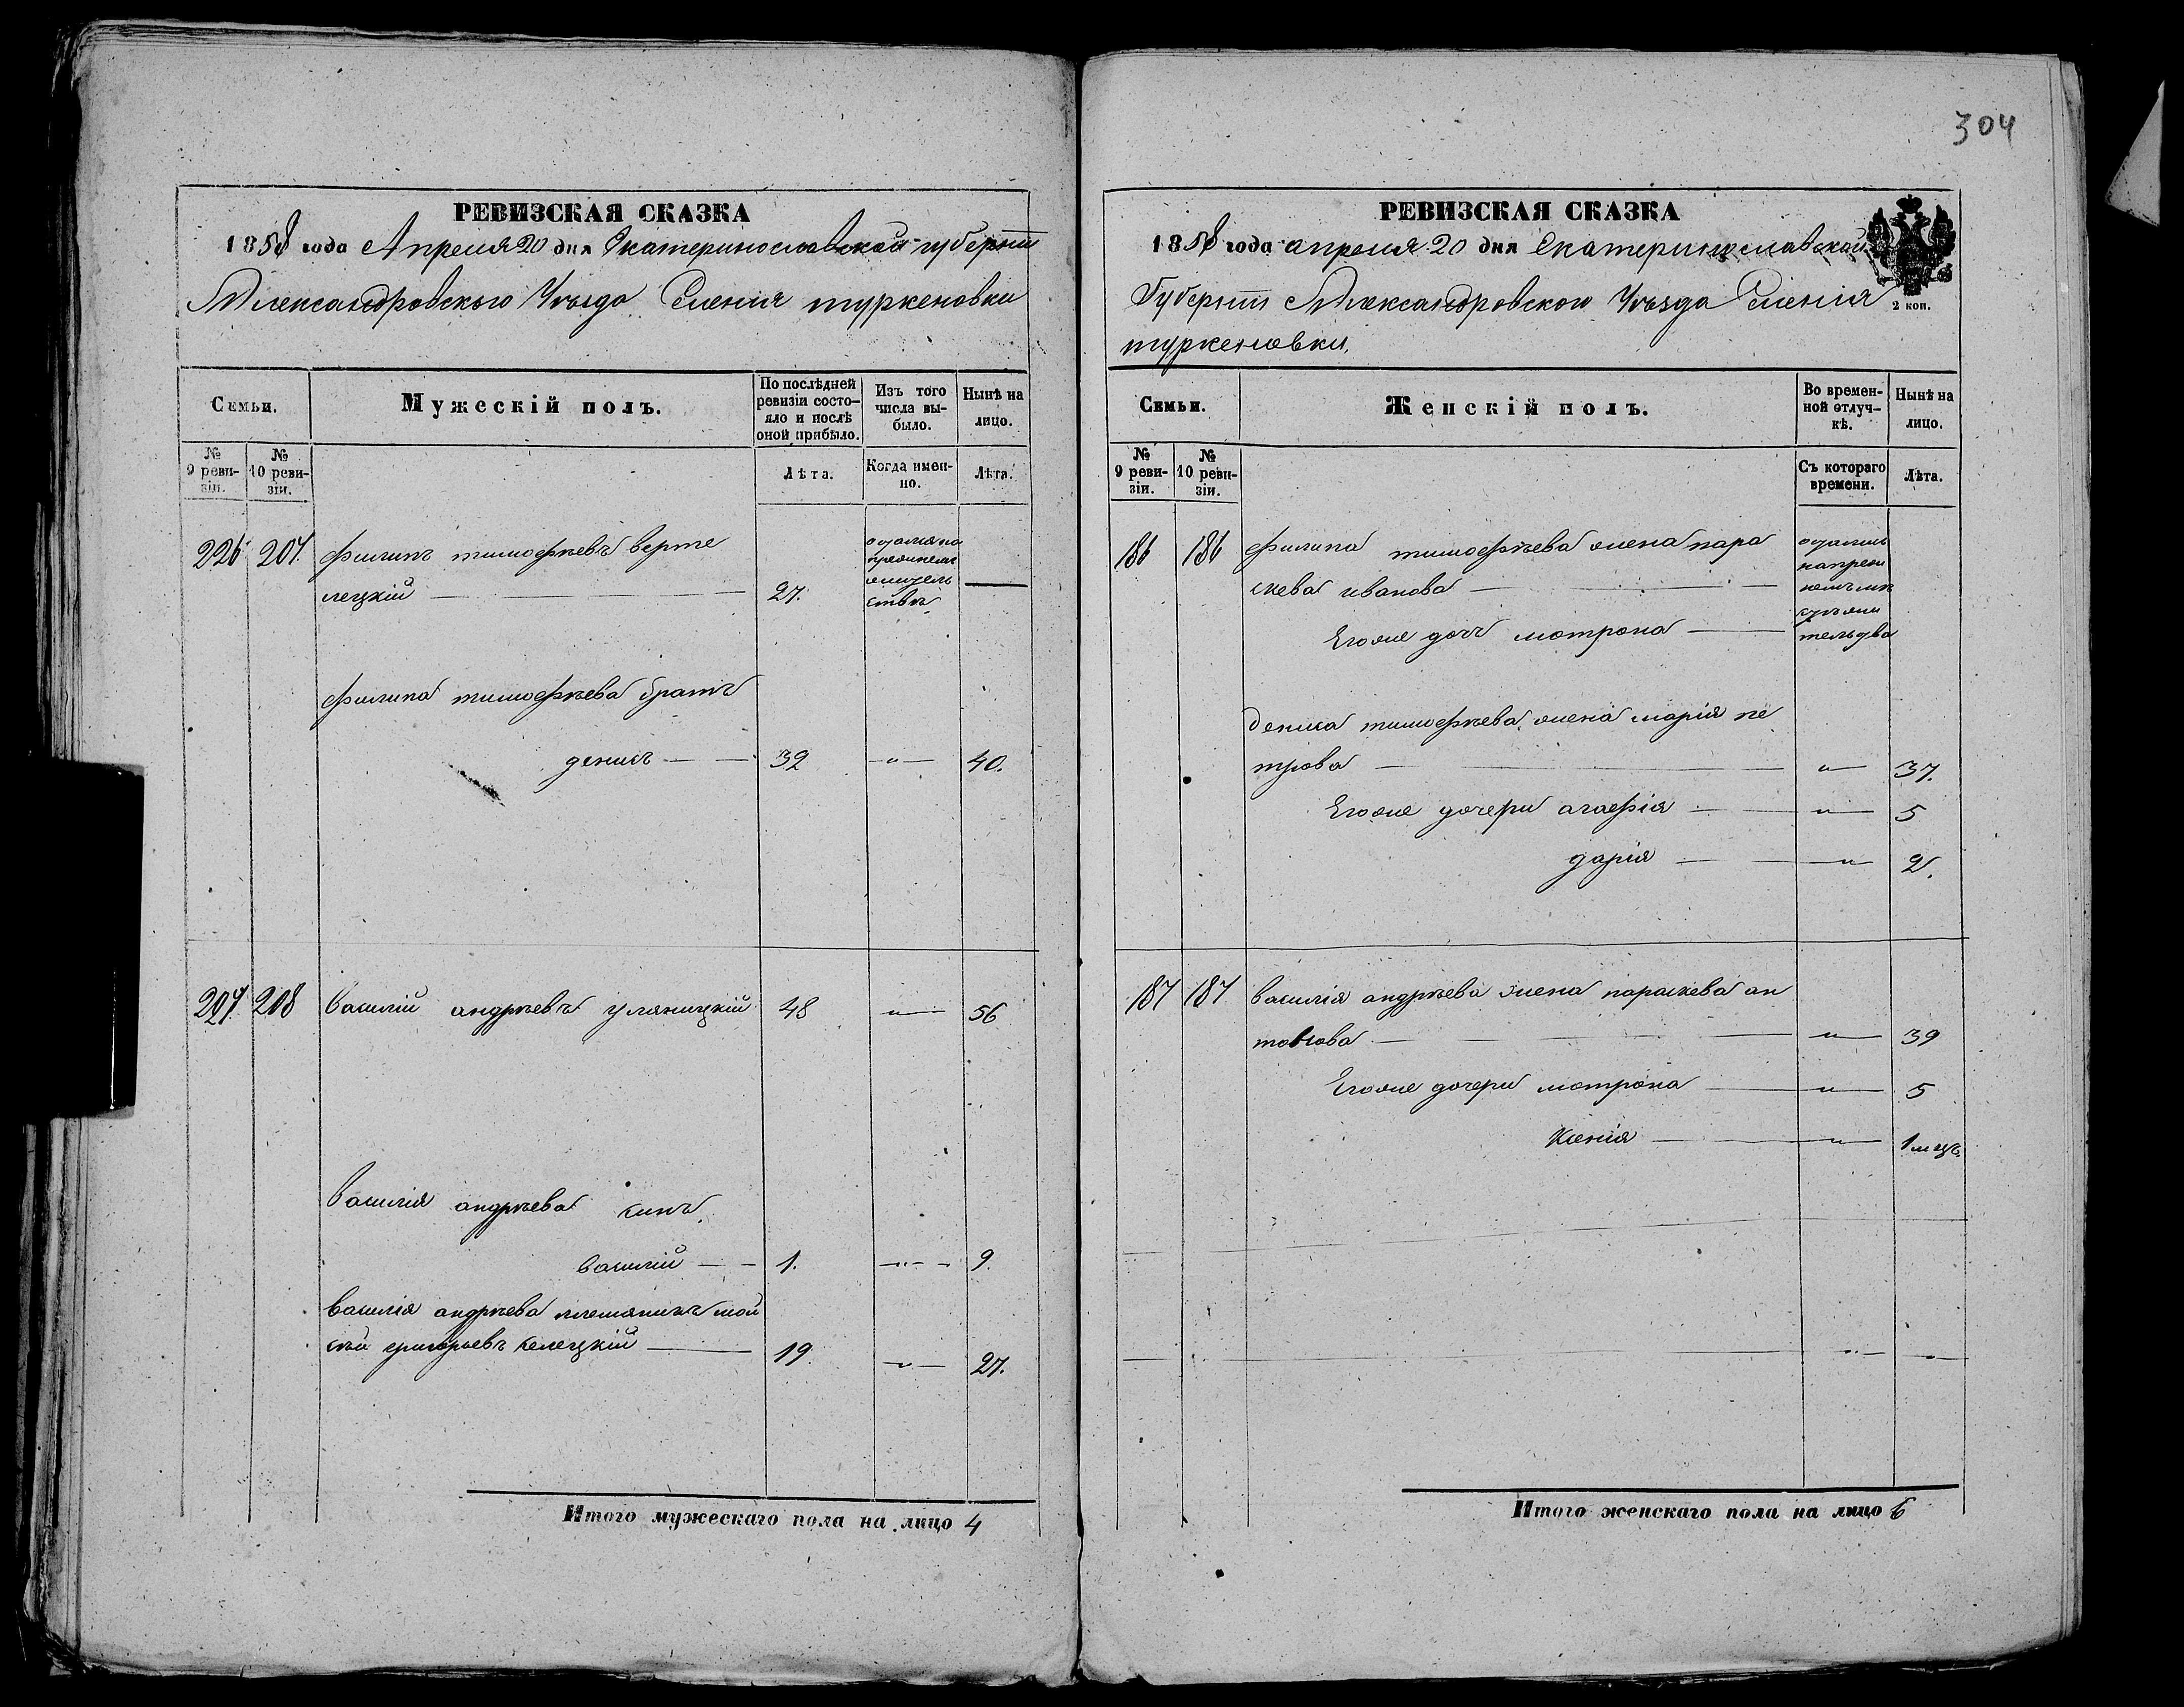 304
РЕВИЗСКАЯ СКАЗКА
1858 года Апреля 20 дня Екатеринославской губернıи
Александровского Уѣзда Селенія туркеновки
Семьи.
Мужескій полъ.
По послѣдней
ревизіи состо-
яло и послѣ
оной прибыло.
Изъ того
числа вы-
было.
Нынѣ на
лицо.
№
9 реви-
зіи.
№
10 реви-
зіи.
Лѣта.
Когда имен-
но.
Лѣта.
226 207 филипъ тимофѣевъ верте
лецкій — 27. —
филипа тимофѣева братъ
денисъ — 32 — " — 40.
207 208 Василій андрѣевъ уляницкій 48 " — 56
Василія андрѣева синъ
василій — 1. — " — 9.
василія андрѣева племяникъ мой
сѣй григорьевъ келецкій — 19 — " — 27.
Итого мужескаго пола на лицо 4
РЕВИЗСКАЯ СКАЗКА
1858 года апреля 20 дня Екатеринославской
Губерніи Александровского Уѣзда Селенія
туркеновки.
2 коп.
Семьи.
Женскій полъ.
Во времен-
ной отлуч-
кѣ.
Нынѣ на
лицо.
№
9 реви-
зіи.
№
10 реви-
зіи.
Съ котораго
времени.
Лѣта.
186 186 филипа тимофѣева жена пара
скева иванова —
Егоже дочь мотрона —
дениса тимофѣева жена марія пе
трова — " — 37.
Егоже дочери агафія — " — 5
дарія — " — 2.
187 187 василія андрѣева жена параскева ан
тонова — " — 39
Егоже дочери мотрона — " — 5
Ксенія — " — 1 мцъ
Итого женскаго пола на лицо 6